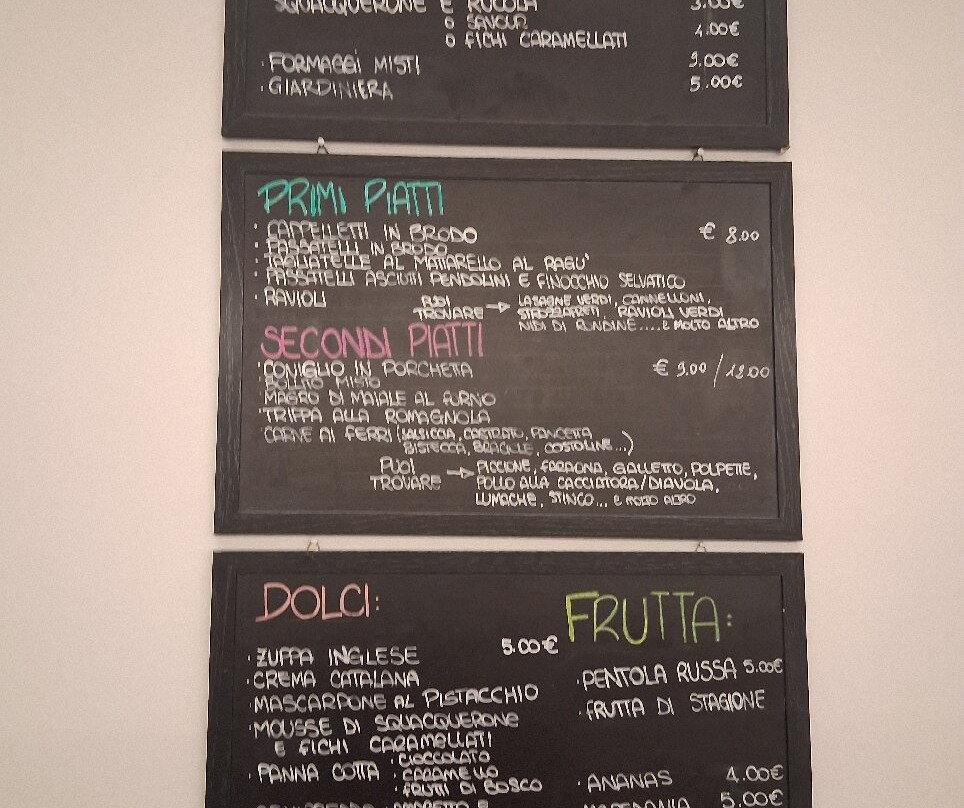 SQUACQUERONE E RUCOLA 3.00€
O SAVOUR
O FICHI CARAMELLATI 4.00€
· FORMAGGI MISTI 9.00€
· GIARDINIERA 5.00€
PRIMI PIATTI
· CAPPELLETTI IN BRODO € 8.00
· PASSATELLI IN BRODO
· TAGLIATELLE AL MATTARELLO AL RAGU'
· PASSATELLI ASCIUTTI PENDOLINI E FINOCCHIO SELVATICO
· RAVIOLI
PUOI TROVARE → LASAGNE VERDI, CANNELLONI,
STROZZAPRETI, RAVIOLI VERDI
NIDI DI RONDINE.... E MOLTO ALTRO
SECONDI PIATTI
· CONIGLIO IN PORCHETTA € 9.00 / 12.00
BOLLITO MISTO
· MAGRO DI MAIALE AL FORNO
· TRIPPA ALLA ROMAGNOLA
CARNE AI FERRI (SALSICCIA, CASTRATO, PANCETTA
BISTECCA, BRACIOLE, COSTOLINE...)
PUOI TROVARE → PICCIONE, FARAONA, GALLETTO, POLPETTE,
POLLO ALLA CACCIATORA/DIAVOLA,
LUMACHE, STINCO... E MOLTO ALTRO
DOLCI:
· ZUPPA INGLESE 5.00€
· CREMA CATALANA
· MASCARPONE AL PISTACCHIO
· MOUSSE DI SQUACQUERONE
E FICHI CARAMELLATI
· PANNA COTTA · CIOCCOLATO
· CARAMELLO
· FRUTTI DI BOSCO
SEMIFREDDO AMARETTO E
FRUTTA:
· PENTOLA RUSSA 5.00€
· FRUTTA DI STAGIONE
· ANANAS 4.00€
MACEDONIA 5.00€